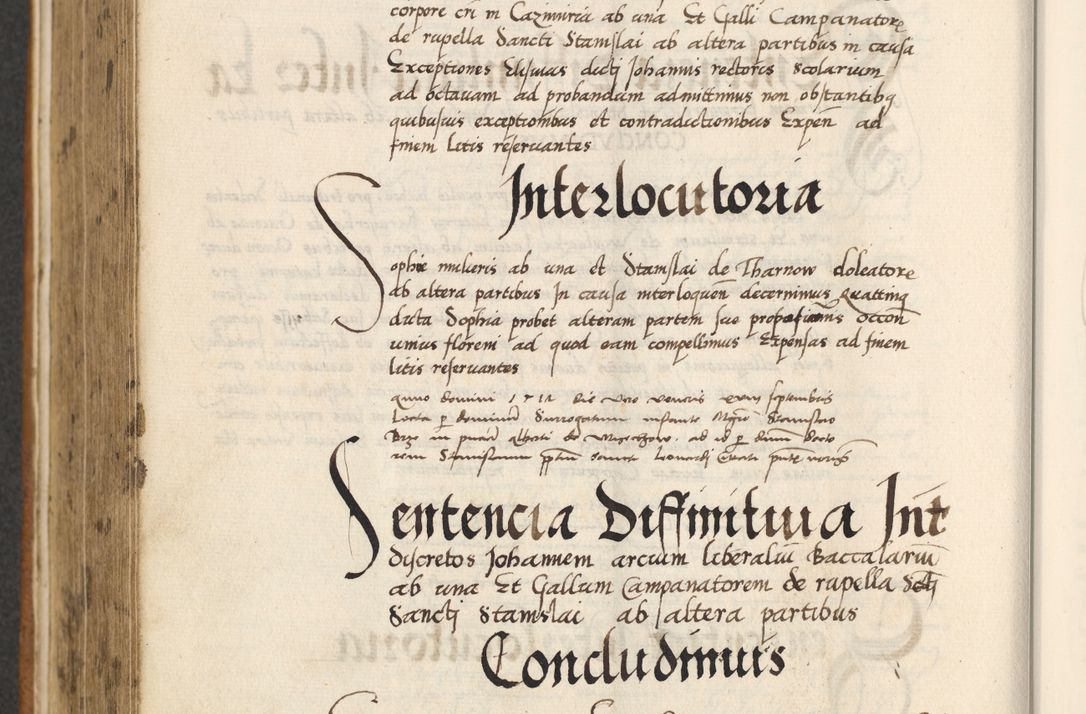 corpore cri in Cazimiria ab una Et Galli Campanatore
de rupella Sancti Stanislai ab altera partibus in causa
Exceptiones Elisivas dicti Johannis rectoris Scolarium
ad octavam ad probandum admittimus non obstantibq
quibusvis exceptionibus et contradictionibus Expen ad
finem litis reservantes
Interlocutoria
Sophie mulieris ab una et Stanislai de Tharnow doleatore
ab altera partibus In causa interloquen decernimus Quattinq
dicta Sophia probet alteram partem sue occon
unius floreni ad quod eam compellimus Expensas ad finem
litis reservantes
Anno domini die vero veneris xviii septembris
Lata p dominum Surrogatum instante Stanislao
ad id p
Sentencia Diffinitiva Int
discretos Johannem arcium liberaliu Baccalariu
ab una Et Gallum Campanatorem de rupella Scti
Sancti Stanislai ab altera partibus
Concludimus